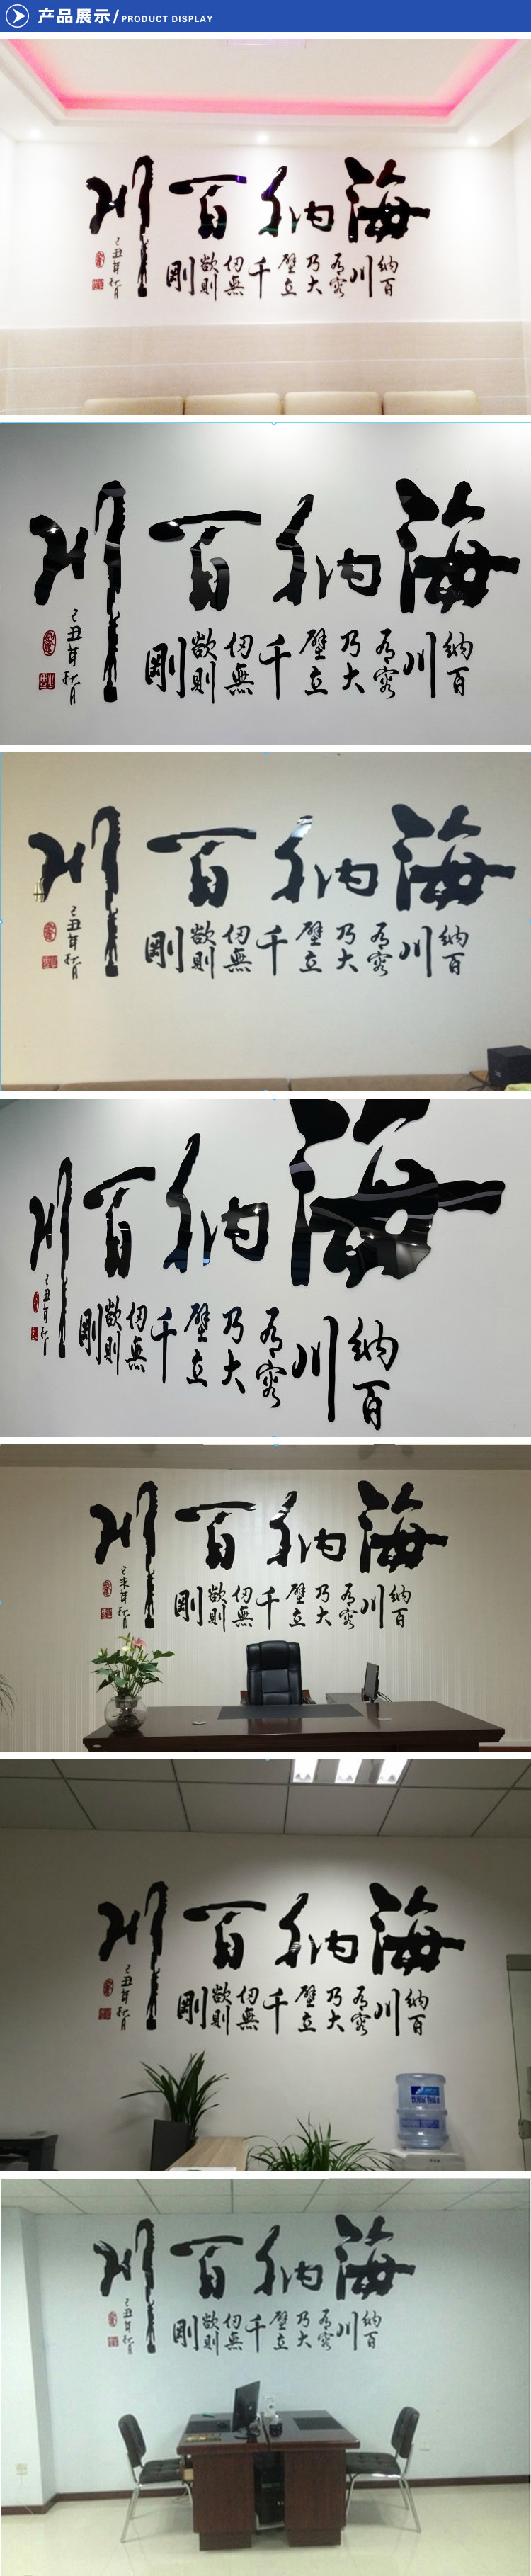 产品展示/PRODUCT DISPLAY
海纳百川
纳百川有容乃大壁立千仞無欲則剛
己丑年秋月
海纳百川
纳百川有容乃大壁立千仞無欲則剛
己丑年秋月
海纳百川
纳百川有容乃大壁立千仞無欲則剛
己丑年秋月
海纳百川
纳百川有容乃大壁立千仞無欲則剛
己丑年秋月
海纳百川
纳百川有容乃大壁立千仞無欲則剛
己未年秋月
海纳百川
纳百川有容乃大壁立千仞無欲則剛
己丑年秋月
海纳百川
纳百川有容乃大壁立千仞無欲則剛
己丑年秋月